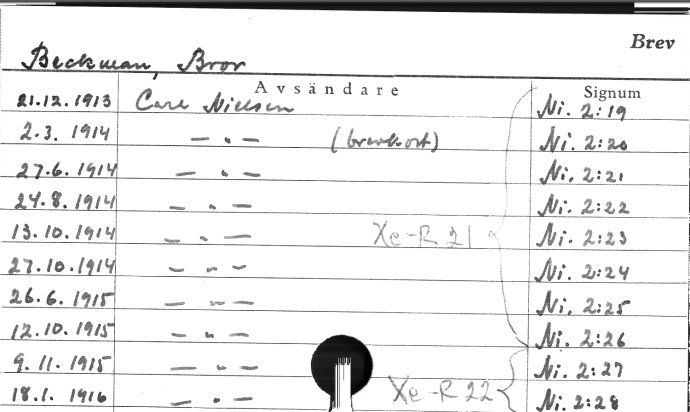 Brev
Beckman, Bror
Avsändare Signum
21.12.1913 Carl Nielsen Ni. 2:19
2.3. 1914 — " — (brevkort) Ni. 2:20
27.6. 1914 — " — Ni. 2:21
24.8. 1914 — " — Ni. 2:22
13.10.1914 — " — Xe-R 21 Ni. 2:23
27.10.1914 — " — Ni. 2:24
26.6. 1915 — " — Ni. 2:25
12.10.1915 — " — Ni. 2:26
9.11.1915 — " — Ni. 2:27
18.1. 1916 — " — Xe-R 22 Ni. 2:28